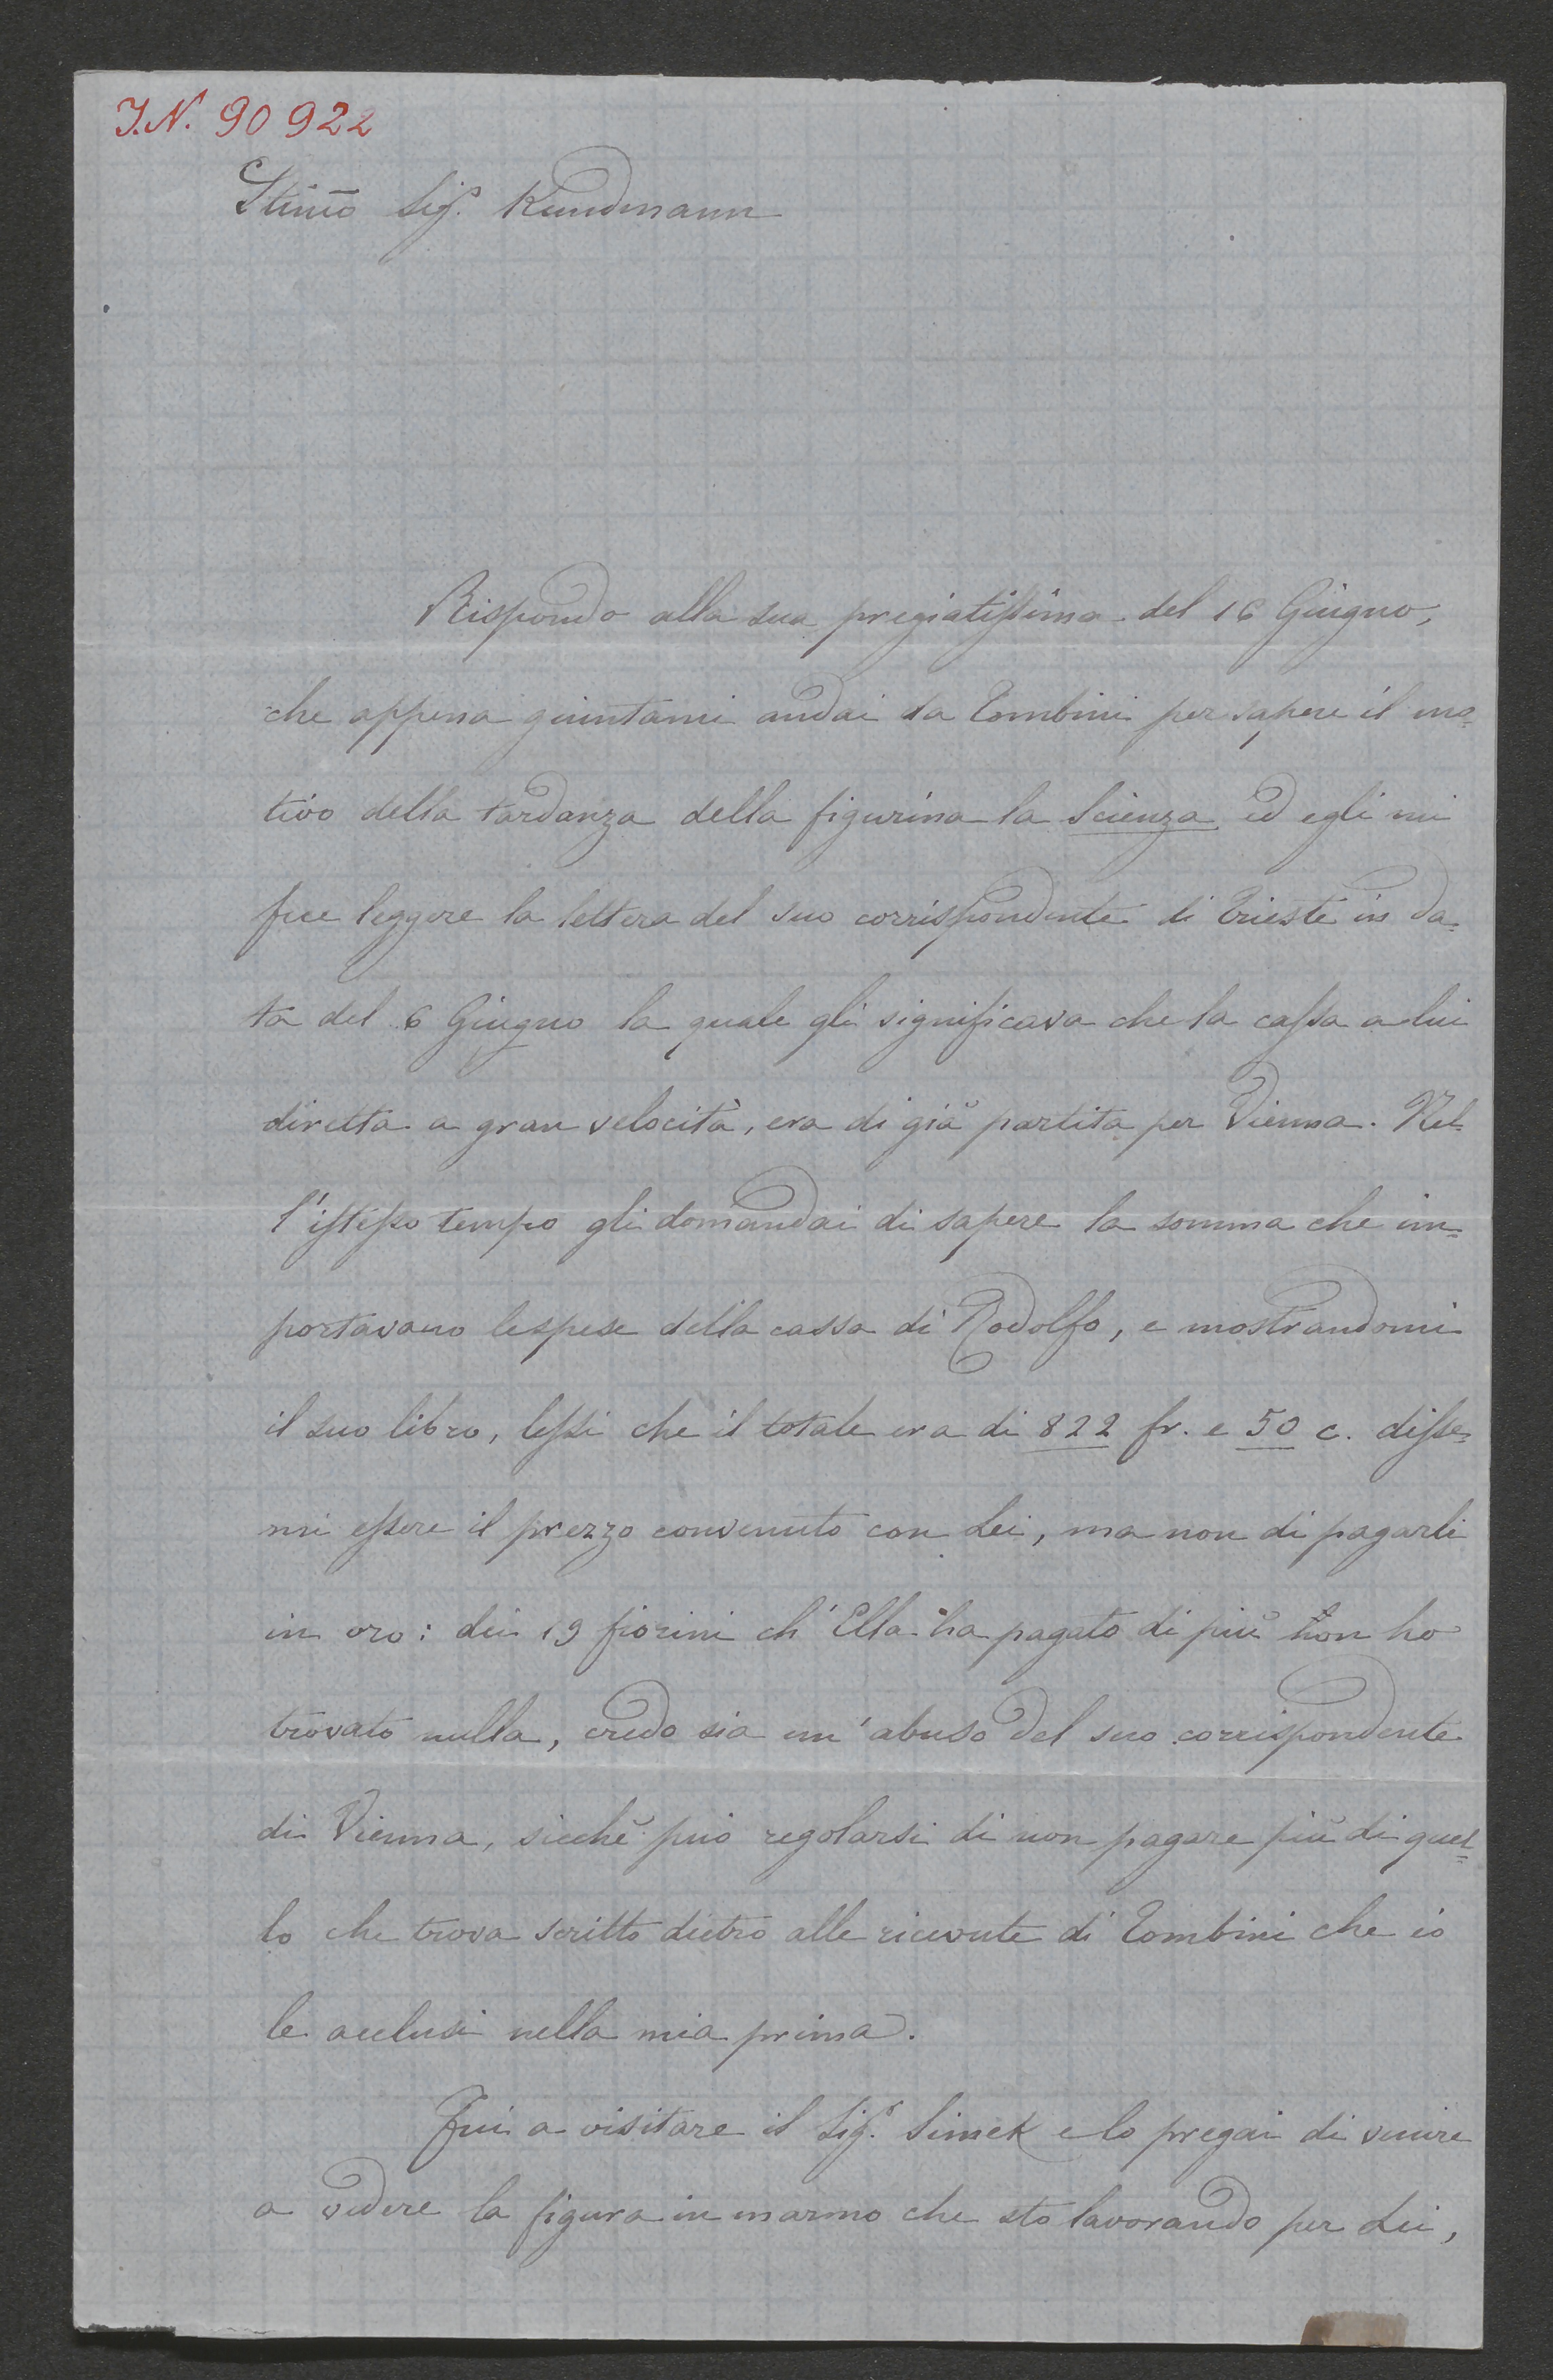 I.N. 90922
Stimo Sigr. Kundmann
Rispondo alla sua pregiatissima del 16 Giugno,
che appena giuntami andai da Tombini per sapere il mo=
tivo della tardanza della figurina la Scienza ed egli mi
fece leggere la lettera del suo corrispondente di Trieste in da=
ta del 6 Giugno la quale gli significava che la cassa a lui
diretta a gran velocità, era di già partita per Vienna. Nel=
l'istesso tempo gli domandai di sapere la somma che im=
portavano le spese della cassa di Rodolfo, e mostrandomi
il suo libro, lessi che il totale era di 822 fr. e 50 c. disse=
mi essere il prezzo convenuto con Lei, ma non di pagarli
in oro: dei 19 fiorini ch' Ella ha pagato di più non ho
trovato nulla, credo sia un' abuso del suo corrispondente
di Vienna, sicchè può regolarsi di non pagare più di quel=
lo che trova scritto dietro alle ricevute di Tombini che io
le acclusi nella mia prima.
Fui a visitare il Sigr. Simek e lo pregai di venire
a vedere la figura in marmo che sto lavorando per Lei,